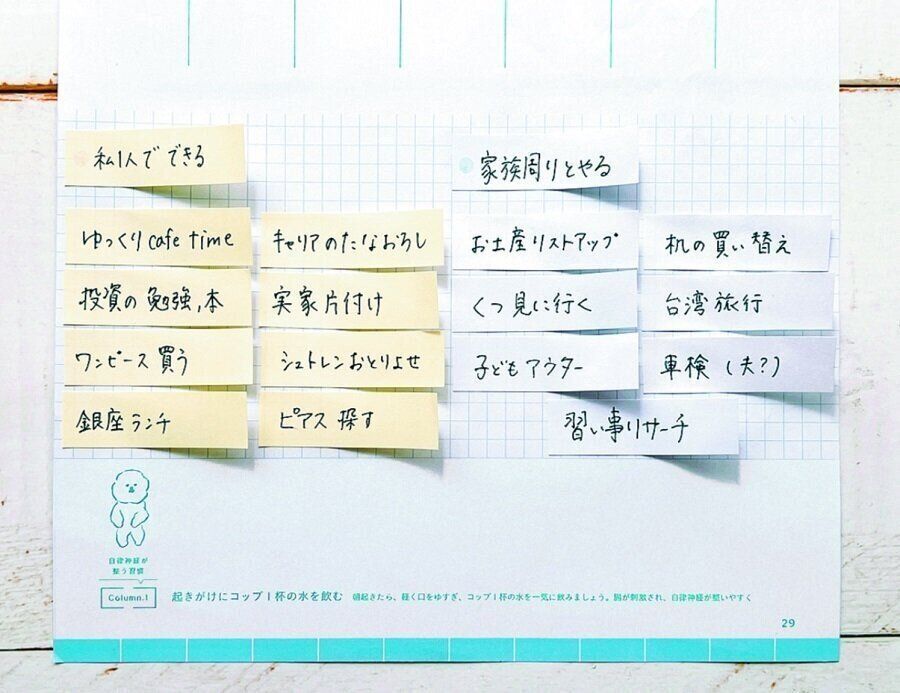 私1人でできる
ゆっくりcafe time
キャリアのたなおろし
投資の勉強,本
実家片付け
ワンピース買う
シュトレンおとりよせ
銀座ランチ
ピアス探す
家族周りとやる
お土産リストアップ
机の買い替え
くつ見に行く
台湾旅行
子どもアウター
車検(夫?)
習い事リサーチ
自律神経が
整う習慣
Column.1
起きがけにコップ1杯の水を飲む
朝起きたら、軽く口をゆすぎ、コップ1杯の水を一気に飲みましょう。腸が刺激され、自律神経が整いやすく
29